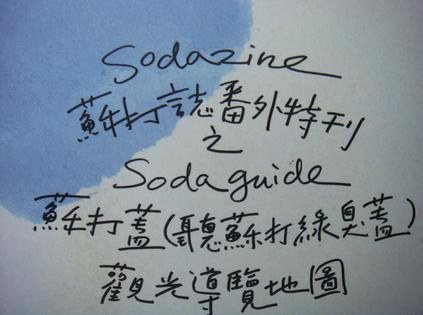 Sodazine
蘇打誌番外特刊
之
Soda guide
蘇打蓋(聽蘇打綠臭蓋)
觀光導覽地圖